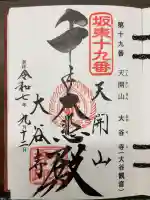 第十九番
天開山
大谷寺(大谷観音)
坂東十九番
天開山
千手大悲殿
大谷寺
奉拝
令和七年